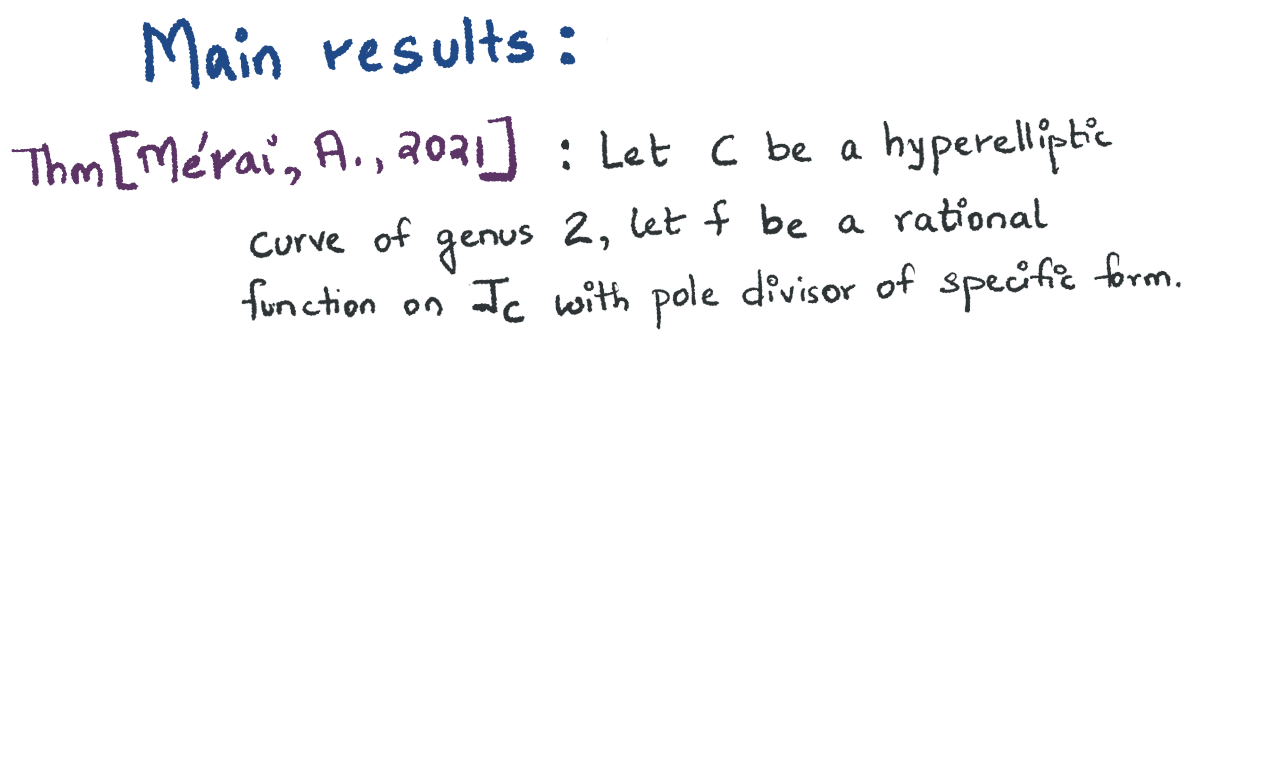 Main results :
Thm [Mérai, A., 2021] : Let C be a hyperelliptic
curve of genus 2, let f be a rational
function on J_C with pole divisor of specific form.